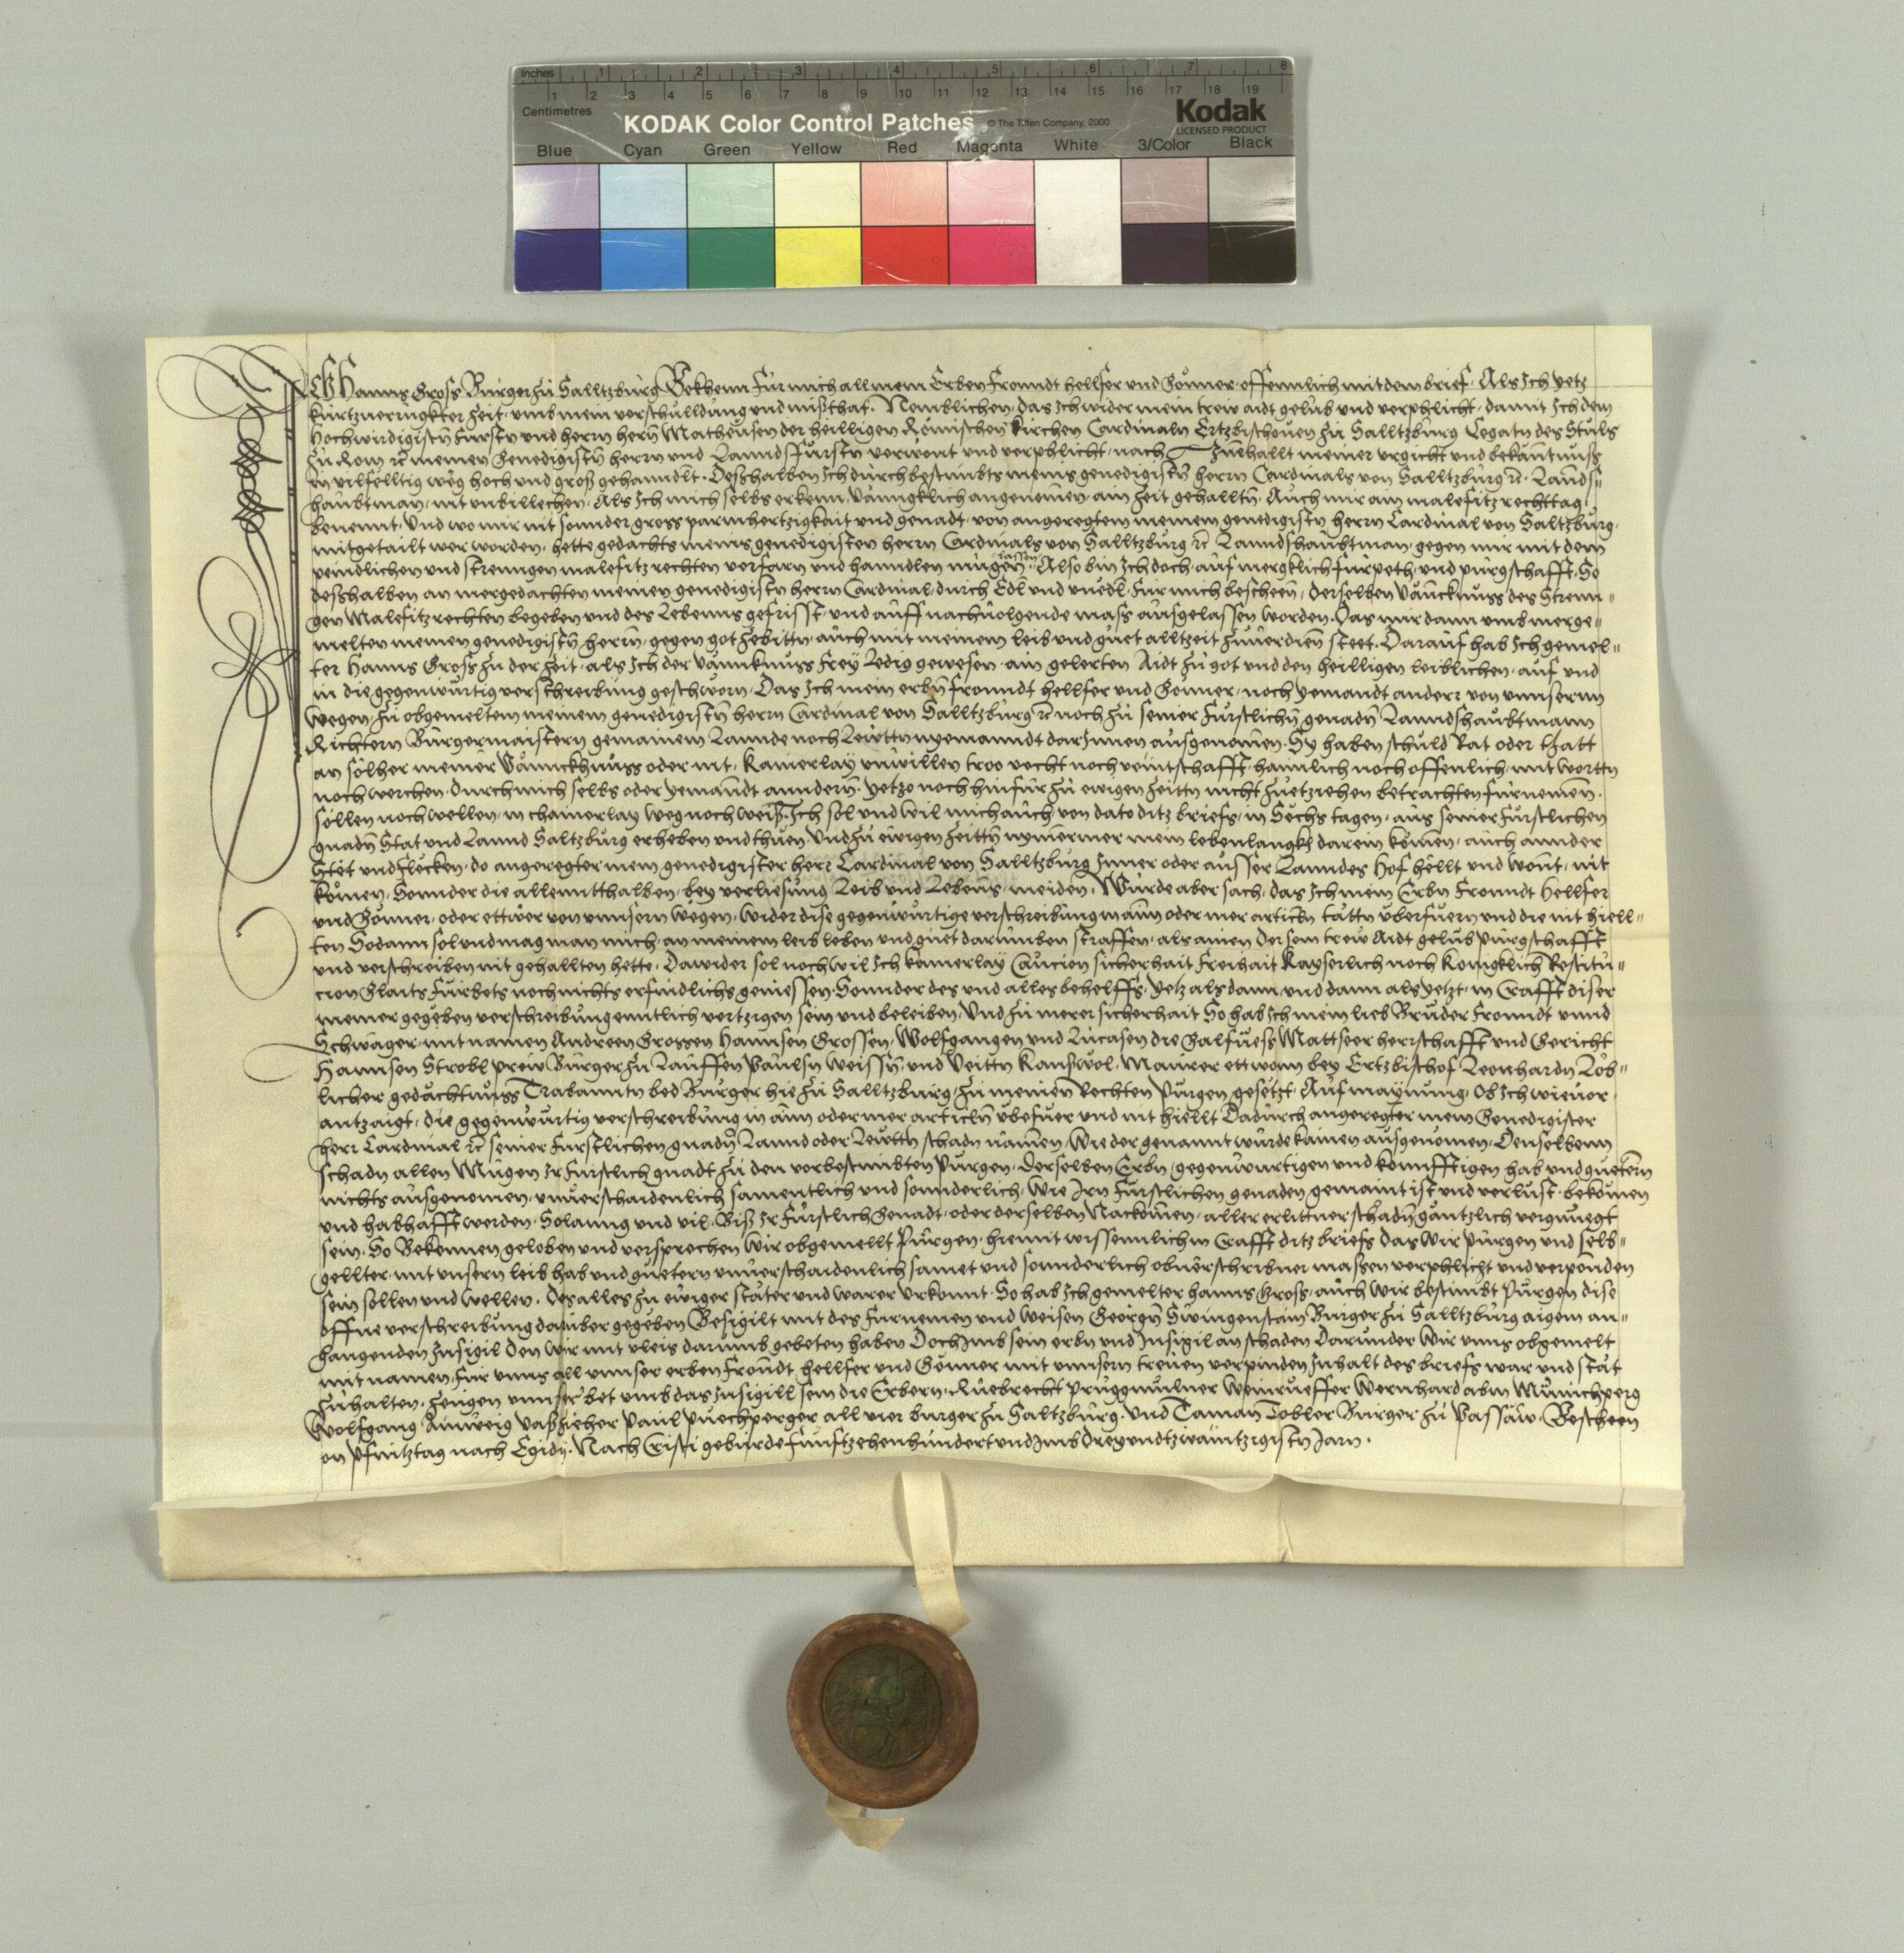 Inches 1 2 3 4 5 6 7 8
1 2 3 4 5 6 7 8 9 10 11 12 13 14 15 16 17 18 19
Centimetres
KODAK Color Control Patches © The Tiffen Company, 2000 Kodak
LICENSED PRODUCT
Blue Cyan Green Yellow Red Magenta White 3/Color Black
Ich Hanns Gross Burger zu Salltzburg Bekhenn für mich all mein Erben Freundt hellfer und Gönner offennlich mit dem brief. Als Ich yetz
kurtzuerrugkter zeit, umb mein verschulldung und mißthat. Nemblichen, das Ich wider mein trew aidt gelüb und verphlicht, damit Ich dem
Hochwirdigistn Fürstn und herrn herrn Matheusen der heilligen Römischen kirchen Cardinaln Ertzbischouen zu Salltzburg Legatn des Stuls
zu Rom etc meinen Genedigistn herrn und Lanndsfürstn verwont und verphlicht, nach Innhallt meiner urgicht und bekanntnuss
in vilfelltig weg hoch und groß gehanndlt. Deßhalben Ich durch bestimbts meins genedigistn herrn Cardinals von Salltzburg etc Lannds-
haubtman, nit unbillichen, Als Ich mich selbs erkenn, vänngklich angenomen, ain zeit gehalltn, Auch mir ain malefitz rechttag
benennt, Und wo mir nit sonnder gross parmhertzigkait und genadt, von angeregtem meinem genedigistn herrn Cardinal von Saltzburg
mitgetailt wer worden, hette gedachts meins genedigisten herrn Cardinals von Salltzburg etc Lanndshaubtman, gegen mir mit dem
peindlichen und strenngen malefitz rechten verfarn und hanndlen mügen lassen Also bin Ich doch, auf mergklich fürpeth, und purgschafft, So
deßhalben an mergedachten meinen genedigistn herrn Cardinal, durch Edl und unedl, für mich bescheen, derselben vänncknuss des Strenn-
gen Malefitzrechten begeben und des Lebenns gefrisst, und auff nachuolgende mass ausgelassen worden. Das mir dann umb merge-
melten meinen genedigistn herrn, gegen got zebittn, auch mit meinem leib und guet alltzeit zuuerdien steet. Darauf hab Ich gemel-
ter Hanns Gross zu der zeit, als Ich der vännknuss frey ledig gewesen, ain gelerten Aidt zu got und den heilligen leiblichen, auf und
in die gegenwurtig verschreibung geschworn, Das Ich mein erbn freundt hellfer und Gonner, noch yemandt annder von unnsern
wegen, zu obgemeltem meinem genedigistn herrn Cardinal von Salltzburg etc noch zu seiner Fürstlichn genadn Lanndshaubtmann
Richtern Burgermaistern gemainem Lannde noch Lewttn nyemanndt darinnen ausgenomen, Sy haben schuld Rat oder thatt
an sölher meiner vännckhnuss oder nit, kainerlay unwillen troo recht noch veintschafft, haimlich noch offenlich, mit wortn
noch werchen, durch mich selbs oder yemandt anndern, yetzo noch hinfür zu ewigen zeittn nicht zuetziehen betrachten fürnemen,
söllen noch wellen, in chainerlay weg noch weiß. Ich sol und wil mich auch von dato ditz briefs, in Sechs tagen, aus seiner Fürstlichen
gnadn Stat und Lannd Saltzburg erheben und thuen, Und zu ewigen zeittn nymermer mein lebenlangkh darein komen, auch annder
Stet und Flecken, do angeregter mein genedigister herr Cardinal von Salltzburg Inner oder ausser Lanndes Hof hellt und wont, nit
komen, Sonnder die allenntthalben, bey verliesung Leib und Lebens, meiden. Wurde aber sach, das Ich mein Erbn Freundt Hellfer
und Gonner, oder ettwer von unnsern wegen, wider dise gegenwurtige verschreibung in ainn oder mer articln tättn überfuern und die nit hiell-
ten Sodann sol und mag man mich, an meinem leib leben und guet darumben straffen, als ainen der sein trew Aidt gelüb Purgschafft
und verschreiben nit gehallten hette, Dawider sol noch wil Ich kainerlay Caucion sicherhait Freihait kayserlich noch konigklich Restitu-
cion Glaits Fürbets noch nichts erfindlichs geniessen, Sonnder des und alles behelffs, yetz als dann, und dann als yetzt, in Crafft diser
meiner gegeben verschreibung enntlich vertzigen sein und beleiben, Und zu merer sicherhait So hab Ich mein lieb Bruder Freundt unnd
Schwäger, mit namen Andreen Grossen Hannsen Grossen, Wolfgangen und Lucasen die Salfuess Mattseer herrschafft und Gericht
Hannsen Strobl prew Burger zu Lauffen Paulsn Weissn, und Veittn Kanßwol, Maurer ettwann bey Ertzbischof Leonhardn Löb-
licher gedächtnuss Trabanntn bed Burger hie zu Salltzburg, zu meinen Rechten Purgen gesetzt, Auf maynung, Ob Ich wie vor
antzaigt, die gegenwurtig verschreibung in ainn oder mer articln übefuer und nit hiellt Dadurch angeregter mein Genedigister
herr Cardinal etc seiner Fürstlichen gnadn Lannd oder Lewttn schadn namen, wie der genannt wurde kainen ausgenomen, Denselben
schadn allen Mügen Ir Fürstlich gnadt zu den vorbestimbten Purgen, derselben Erbn, gegenwurtigen und konnfftigen hab und guetern
nichts ausgenomen, unuerschaidenlich samentlich und sonnderlich, wie Irn Fürstlichen genaden gemaint ist und verlust, bekomen
und habhafft werden, Solanng und vil, Biß Ir Fürstlich Genadt, oder derselben Nackomen, aller erlittner schadn gäntzlich vergnuegt
sein, So Bekennen geloben und versprechen Wir obgemellt Purgen, hiemit wissenntlich in Crafft ditz briefs das wir purgen und selb-
gellter, mit unsern leib hab und guetern unuerschaidenlich samet und sonnderlich obuerschribner massen verphlicht und verponden
sein sollen und wellen. Des alles zu ewiger stäter und warer Urkonnt, So hab Ich gemelter hanns Gross, auch wir bestimbt Purgen dise
offne verschreibung darüber gegeben Besigilt mit des Furnemen und Weisen Georgn Swingenstain Burger zu Salltzburg aigem an-
hangenden Insigil Den wir mit vleis darumb gebeten haben Doch Imb sein erbn und Insigil an schaden Darunder wir unns obgemelt
mit namen, für unns all unnser erben Freundt, hellfer und Gönner mit unnsern trewen verpinden Inhalt des briefs war und stät
zuhalten, zeugen unnser bet umb das Insigill sein die Erbern, Ruebrecht prugkmulner Weinrueffer Wernhard abm Münichperg
Wolfgang Ainweig Vaßzieher Paul Puechperger all vier burger zu Saltzburg. Und Taman Tobler Burger zu Passaw. Bescheen
an Pfintztag nach Egidy. Nach Cristi geburde funftzehenhundert und Imb dreyundtzwaintzigistn Jarn.